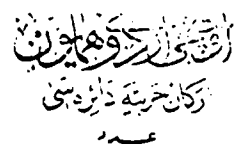 اردوی همایون
ارکان حربیه دائره‌سی
عدد